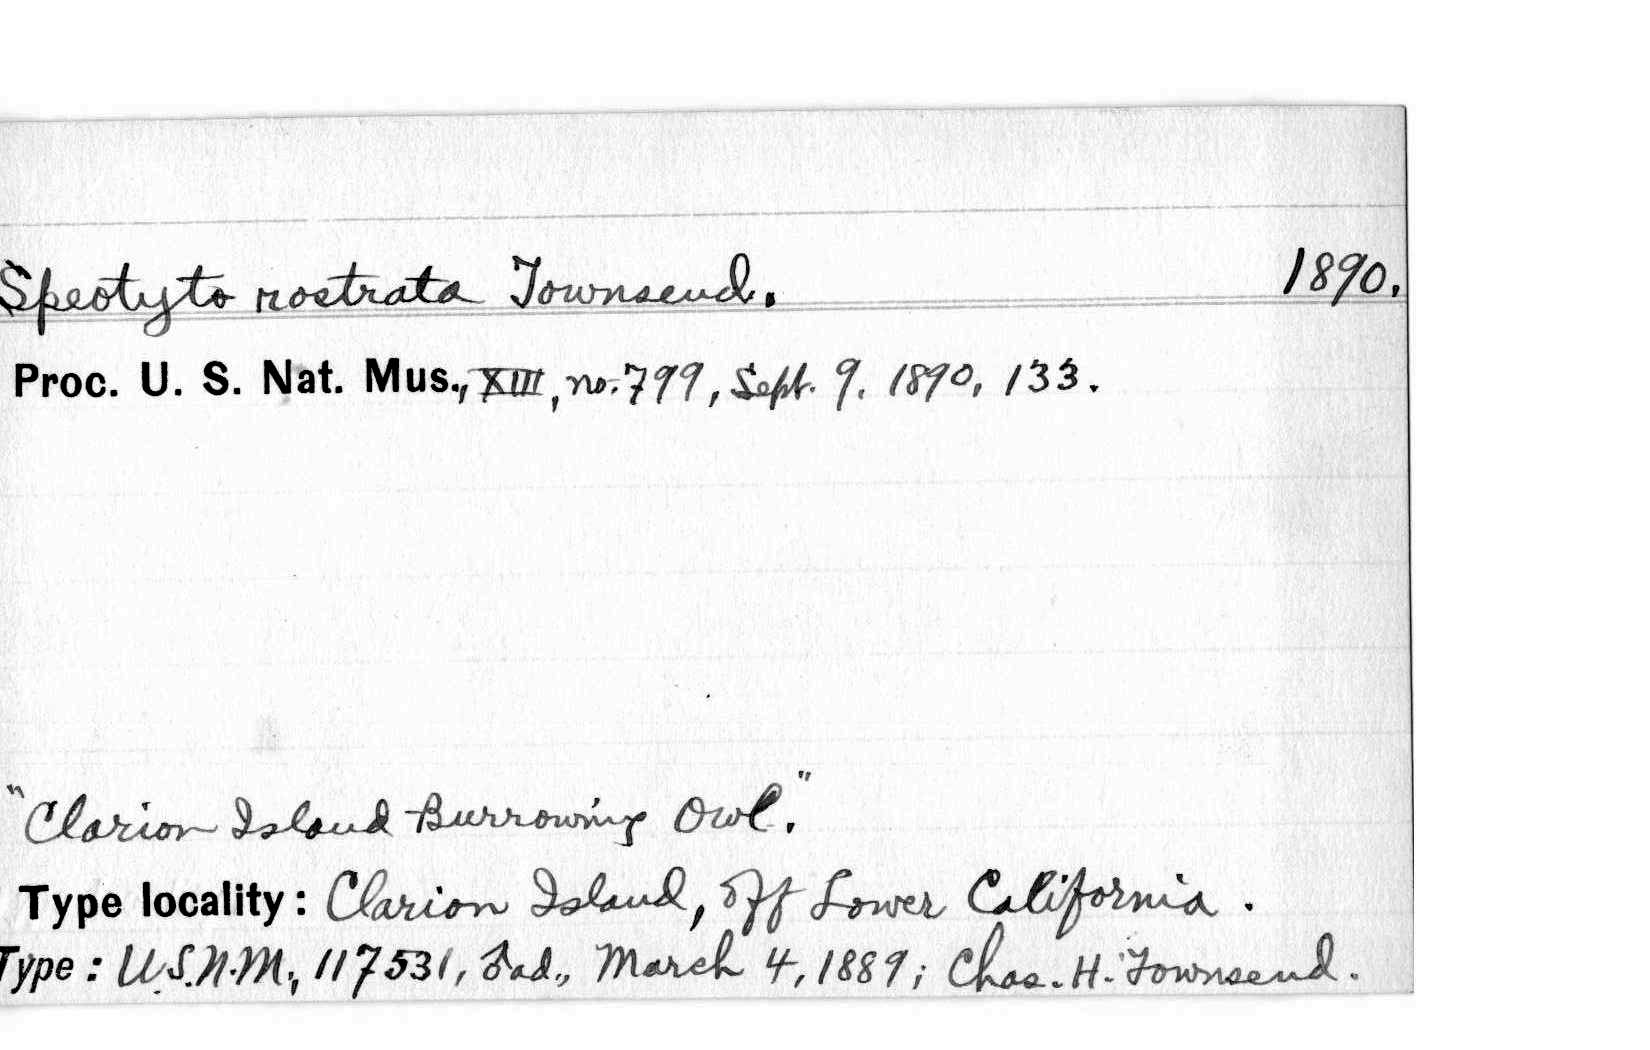 Speotyto rostrata Townsend. 1890.
Proc. U. S. Nat. Mus., XIII, no. 799, Sept. 9, 1890, 133.
"Clarion Island Burrowing Owl."
Type locality: Clarion Island, off Lower California.
Type: U.S.N.M., 117531, ad., March 4, 1889; Chas. H. Townsend.